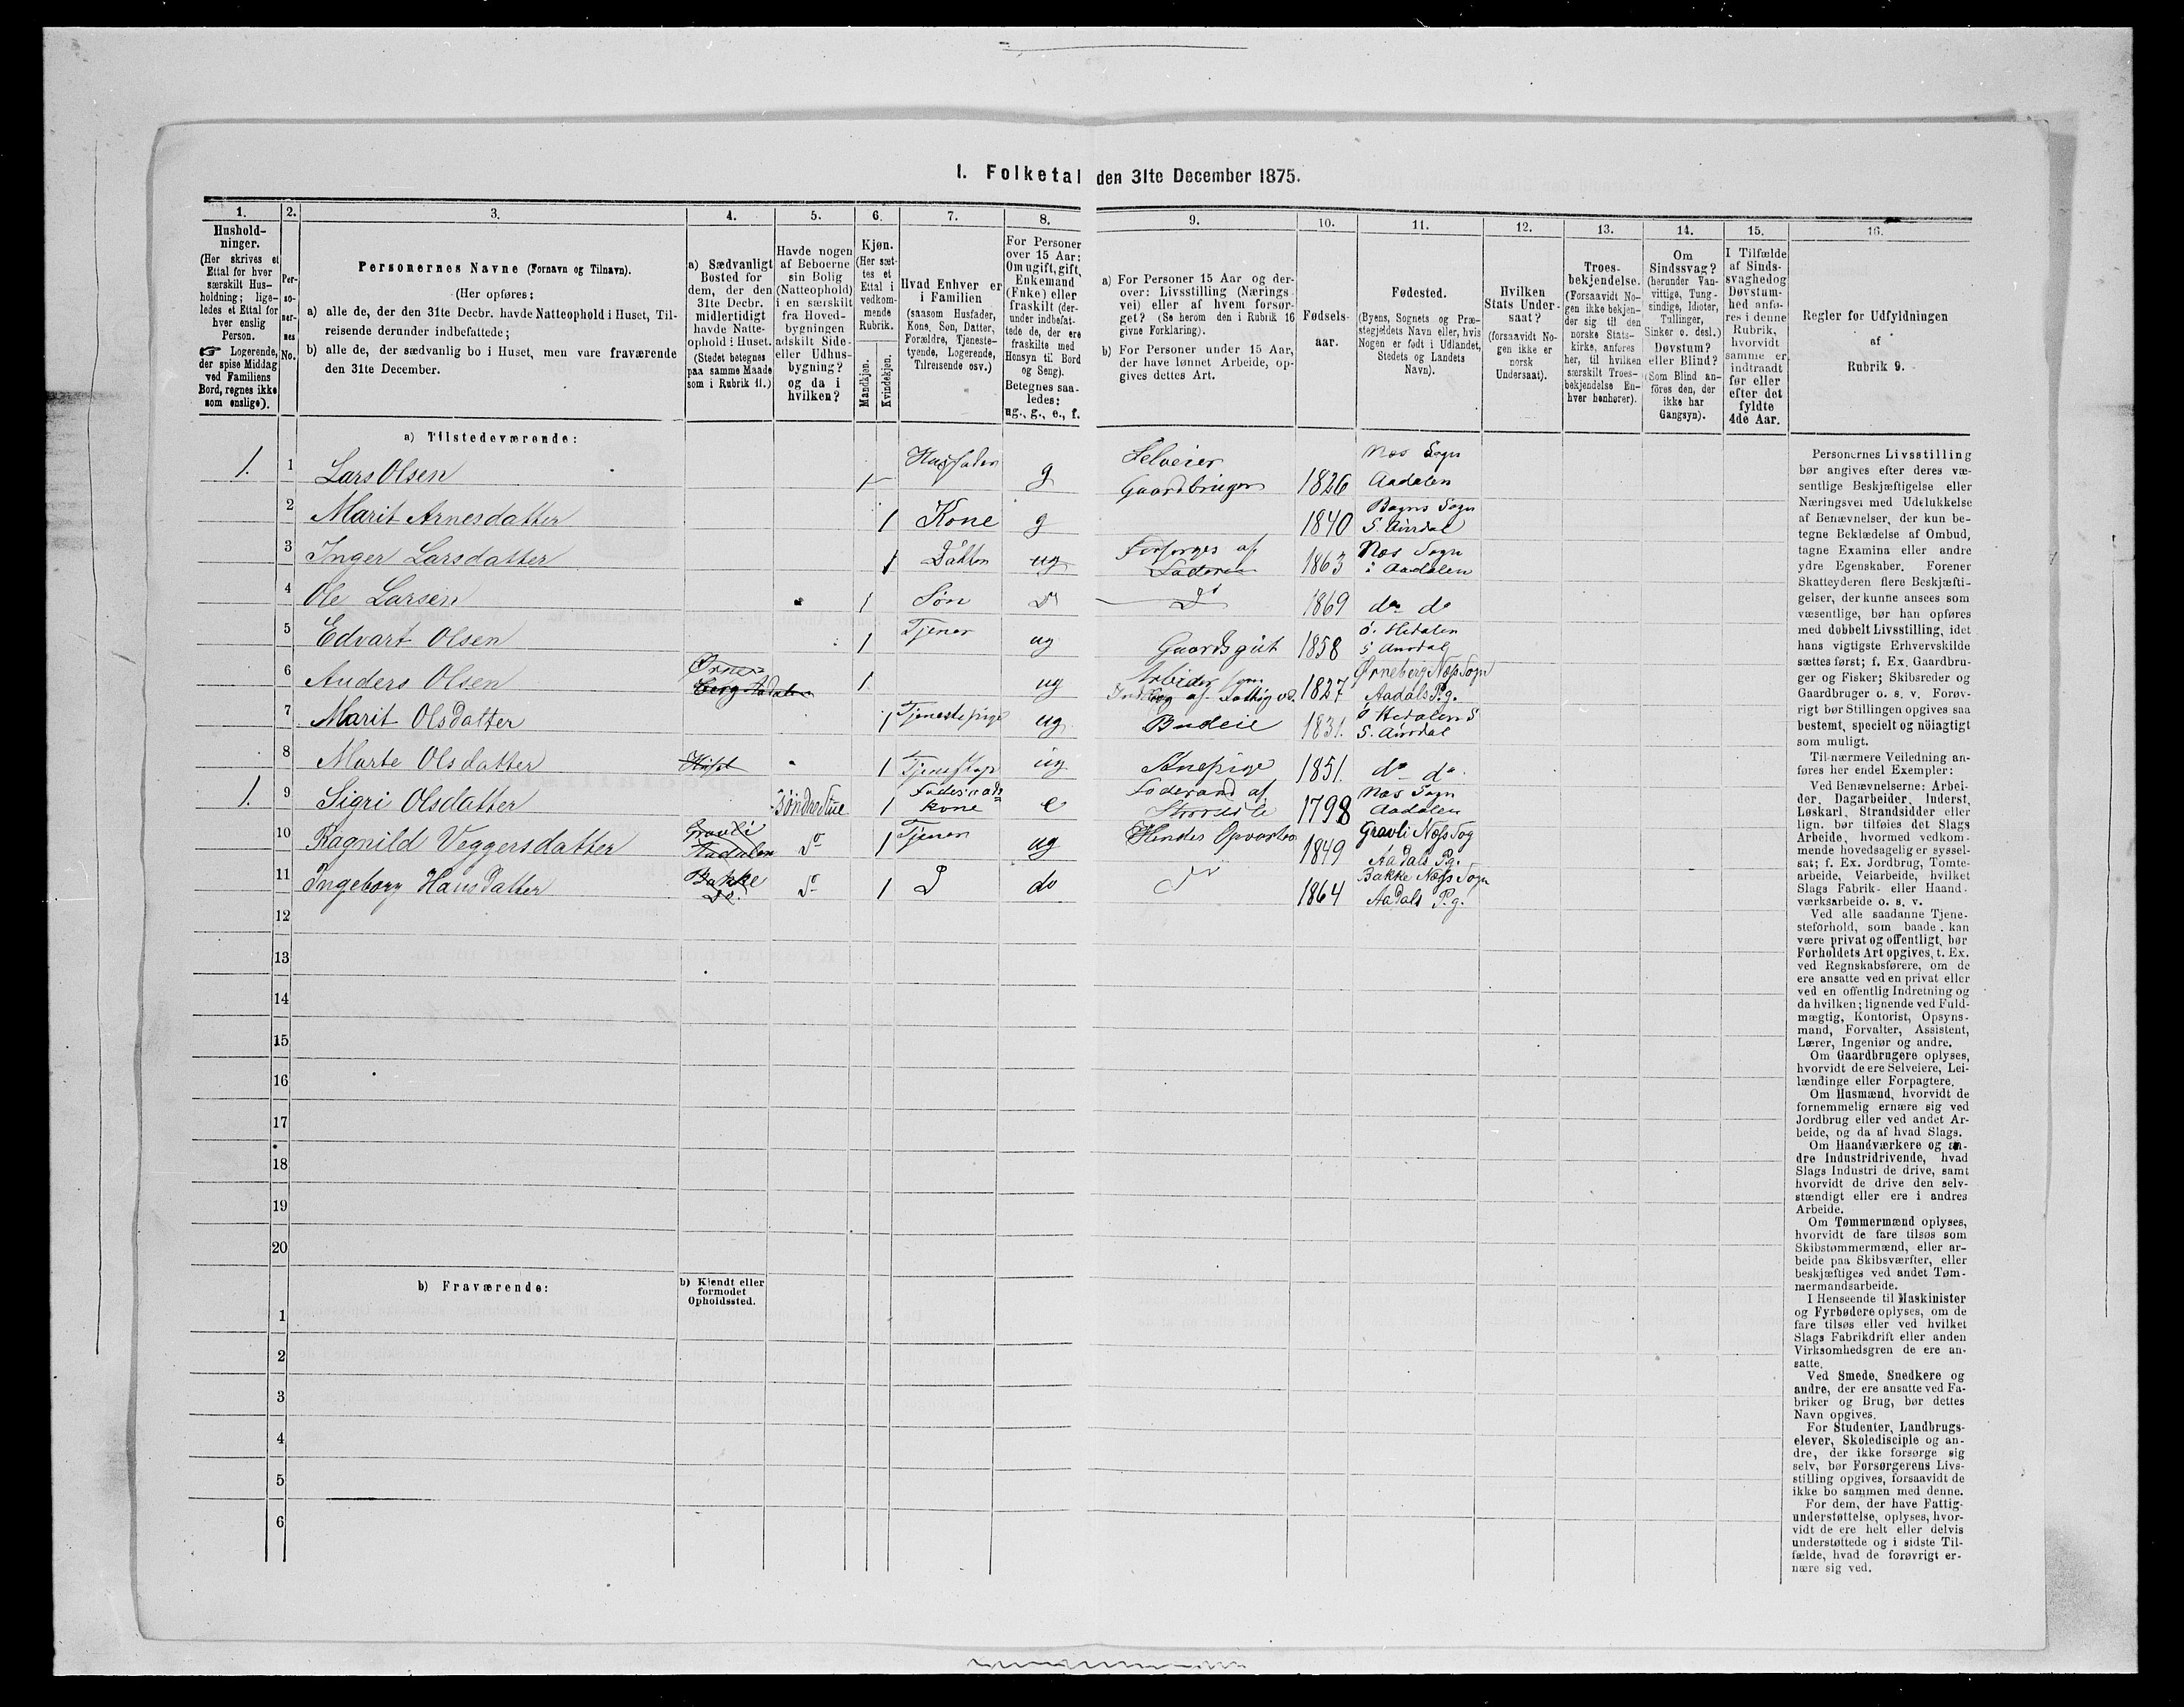 I. Folketal den 31te December 1875.
1.
Hushold-
ninger.
(Her skrives et
Ettal for hver
særskilt Hus-
holdning; lige-
ledes et Ettal for
hver enslig
Person.
☞ Logerende,
der spise Middag
ved Familiens
Bord, regnes ikke
som enslige).
2.
Per-
so-
ner-
nes
No.
3.
Personernes Navne (Fornavn og Tilnavn).
(Her opføres:
a) alle de, der den 31te Decbr. havde Natteophold i Huset, Til-
reisende derunder indbefattede;
b) alle de, der sædvanlig bo i Huset, men vare fraværende
den 31te December.
4.
a) Sædvanligt
Bosted for
dem, der den
31te Decbr.
midlertidigt
havde Natte-
ophold i Huset.
(Stedet betegnes
paa samme Maade
som i Rubrik 11.)
5.
Havde nogen
af Beboerne
sin Bolig
(Natteophold)
i en særskilt
fra Hoved-
bygningen
adskilt Side-
eller Udhus-
bygning?
og da i
hvilken?
6.
Kjøn.
(Her sæt-
tes et
Ettal i
vedkom-
mende
Rubrik.
Mandkjøn.
Kvindekjøn.
7.
Hvad Enhver er
i Familien
(saasom Husfader,
Kone, Søn, Datter,
Forældre, Tjeneste-
tyende, Logerende,
Tilreisende osv.)
8.
For Personer
over 15 Aar:
Om ugift, gift,
Enkemand
(Enke) eller
fraskilt (der-
under indbefat-
tede de, der ere
fraskilte med
Hensyn til Bord
og Seng).
Betegnes saa-
ledes:
ug., g., e., f.
9.
a) For Personer 15 Aar og der-
over: Livsstilling (Nærings-
vei) eller af hvem forsør-
get? (Se herom den i Rubrik 16
givne Forklaring).
b) For Personer under 15 Aar,
der have lønnet Arbeide, op-
gives dettes Art.
10.
Fødsels-
aar.
11.
Fødested.
(Byens, Sognets og Præ-
stegjeldets Navn eller, hvis
Nogen er født i Udlandet,
Stedets og Landets
Navn).
12.
Hvilken
Stats Under-
saat?
(forsaavidt No-
gen ikke er
norsk
Undersaat).
13.
Troes-
bekjendelse.
(Forsaavidt No-
gen ikke bekjen-
der sig til den
norske Stats-
kirke, anføres
her, til hvilken
særskilt Troes-
bekjendelse En-
hver henhører).
14.
Om
Sindssvag?
(herunder Van-
vittige, Tung-
sindige, Idioter,
Tullinger,
Sinker o. desl.)
Døvstum?
eller Blind?
(Som Blind an-
föres den, der
ikke har
Gangsyn).
15.
I Tilfælde
af Sinds-
svaghed og
Døvstum-
hed anfø-
res i denne
Rubrik,
hvorvidt
samme er
indtraadt
før eller
efter det
fyldte
4de Aar.
16.
Regler for Udfyldningen
af
Rubrik 9.
a) Tilstedeværende:
1. 1 Lars Olsen 1 Husfader g Selveier Gaardbruger 1826 Næs Sogn Aadalen
2 Marit Arnesdatter 1 Kone g 1840 Bagns Sogn S. Aurdal
3 Inger Larsdatter 1 Datter ug Forsørges af Faderen 1863 Næs Sogn i Aadalen
4 Ole Larsen 1 Søn Do Do 1869 do do
5 Edvart Olsen 1 Tjener ug Gaardsgut 1858 Ö. Hedalen S Aurdal
6 Anders Olsen Ørneberg Aadalen 1 ug Arbeider som 1827 Ørneberg Næs Sogn Aadals P.g.
7 Marit Olsdatter 1 Tjenestepige ug Budeie 1831. Hedalen S S. Aurdal
8 Marte Olsdatter 1 Tjenestep ug 1851. do do.
1. 9 Sigri Olsdatter SøndreStue 1 Føderaads kone e Føderaad af 1798 Næs Sogn Aadalen
10 Ragnild Veggersdatter Gravli Aadalen do 1 Tjener ug Hendes Opvarter 1849 Gravli Næs Sog Aadals P.g.
11 Ingeborg Hansdatter Bakke Do. do 1 D do Do 1864 Bakke Næs Sogn Aadals P.g.
12
13
14
15
16
17
18
19
20
b) Fraværende:
b) Kjendt eller
formodet
Opholdssted.
1
2
3
4
5
6
Personernes Livsstilling
bør angives efter deres væ-
sentlige Beskjæftigelse eller
Næringsvei med Udelukkelse
af Benævnelser, der kun be-
tegne Beklædelse af Ombud,
tagne Examina eller andre
ydre Egenskaber. Forener
Skatteyderen flere Beskjæfti-
gelser, der kunne ansees som
væsentlige, bør han opføres
med dobbelt Livsstilling, idet
hans vigtigste Erhvervskilde
sættes først; f. Ex. Gaardbru-
ger og Fisker; Skibsreder og
Gaardbruger o. s. v. Forøv-
rigt bør Stillingen opgives saa
bestemt, specielt og nöiagtigt
som muligt.
Til nærmere Veiledning an-
føres her endel Exempler:
Ved Benævnelserne: Arbei-
der, Dagarbeider, Inderst,
Løskarl, Strandsidder eller
lign. bør tilføies det Slags
Arbeide, hvormed vedkom-
mende hovedsagelig er syssel-
sat; f. Ex. Jordbrug, Tomte-
arbeide, Veiarbeide, hvilket
Slags Fabrik- eller Haand-
værksarbeide o. s. v.
Ved alle saadanne Tjene-
steforhold, som baade kan
være privat og offentligt, bør
Forholdets Art opgives, t. Ex.
ved Regnskabsførere, om de
ere ansatte ved en privat eller
ved en offentlig Indretning og
da hvilken; lignende ved Fuld-
mægtig, Kontorist, Opsyns-
mand, Forvalter, Assistent,
Lærer, Ingeniør og andre.
Om Gaardbrugere oplyses,
hvorvidt de ere Selveiere, Lei-
lændinge eller Forpagtere.
Om Husmænd, hvorvidt de
fornemmelig ernære sig ved
Jordbrug eller ved andet Ar-
beide, og da af hvad Slags.
Om Haandværkere og an-
dre Industridrivende, hvad
Slags Industri de drive, samt
hvorvidt de drive den selv-
stændigt eller ere i andres
Arbeide.
Om Tømmermænd oplyses,
hvorvidt de fare tilsøs som
Skibstømmermænd, eller ar-
beide paa Skibsværfter, eller
beskjæftiges ved andet Tøm-
mermandsarbeide.
I Henseende til Maskinister
og Fyrbødere oplyses, om de
fare tilsøs eller ved hvilket
Slags Fabrikdrift eller anden
Virksomhedsgren de ere an-
satte.
Ved Smede, Snedkere og
andre, der ere ansatte ved Fa-
briker og Brug, bør dettes
Navn opgives.
For Studenter, Landbrugs-
elever, Skoledisciple og an-
dre, der ikke forsørge sig
selv, bør Forsørgerens Livs-
stilling opgives, forsaavidt de
ikke bo sammen med denne.
For dem, der have Fattig-
understøttelse, oplyses, hvor-
vidt de ere helt eller delvis
understøttede og i sidste Til-
fælde, hvad de forøvrigt er-
nære sig ved.